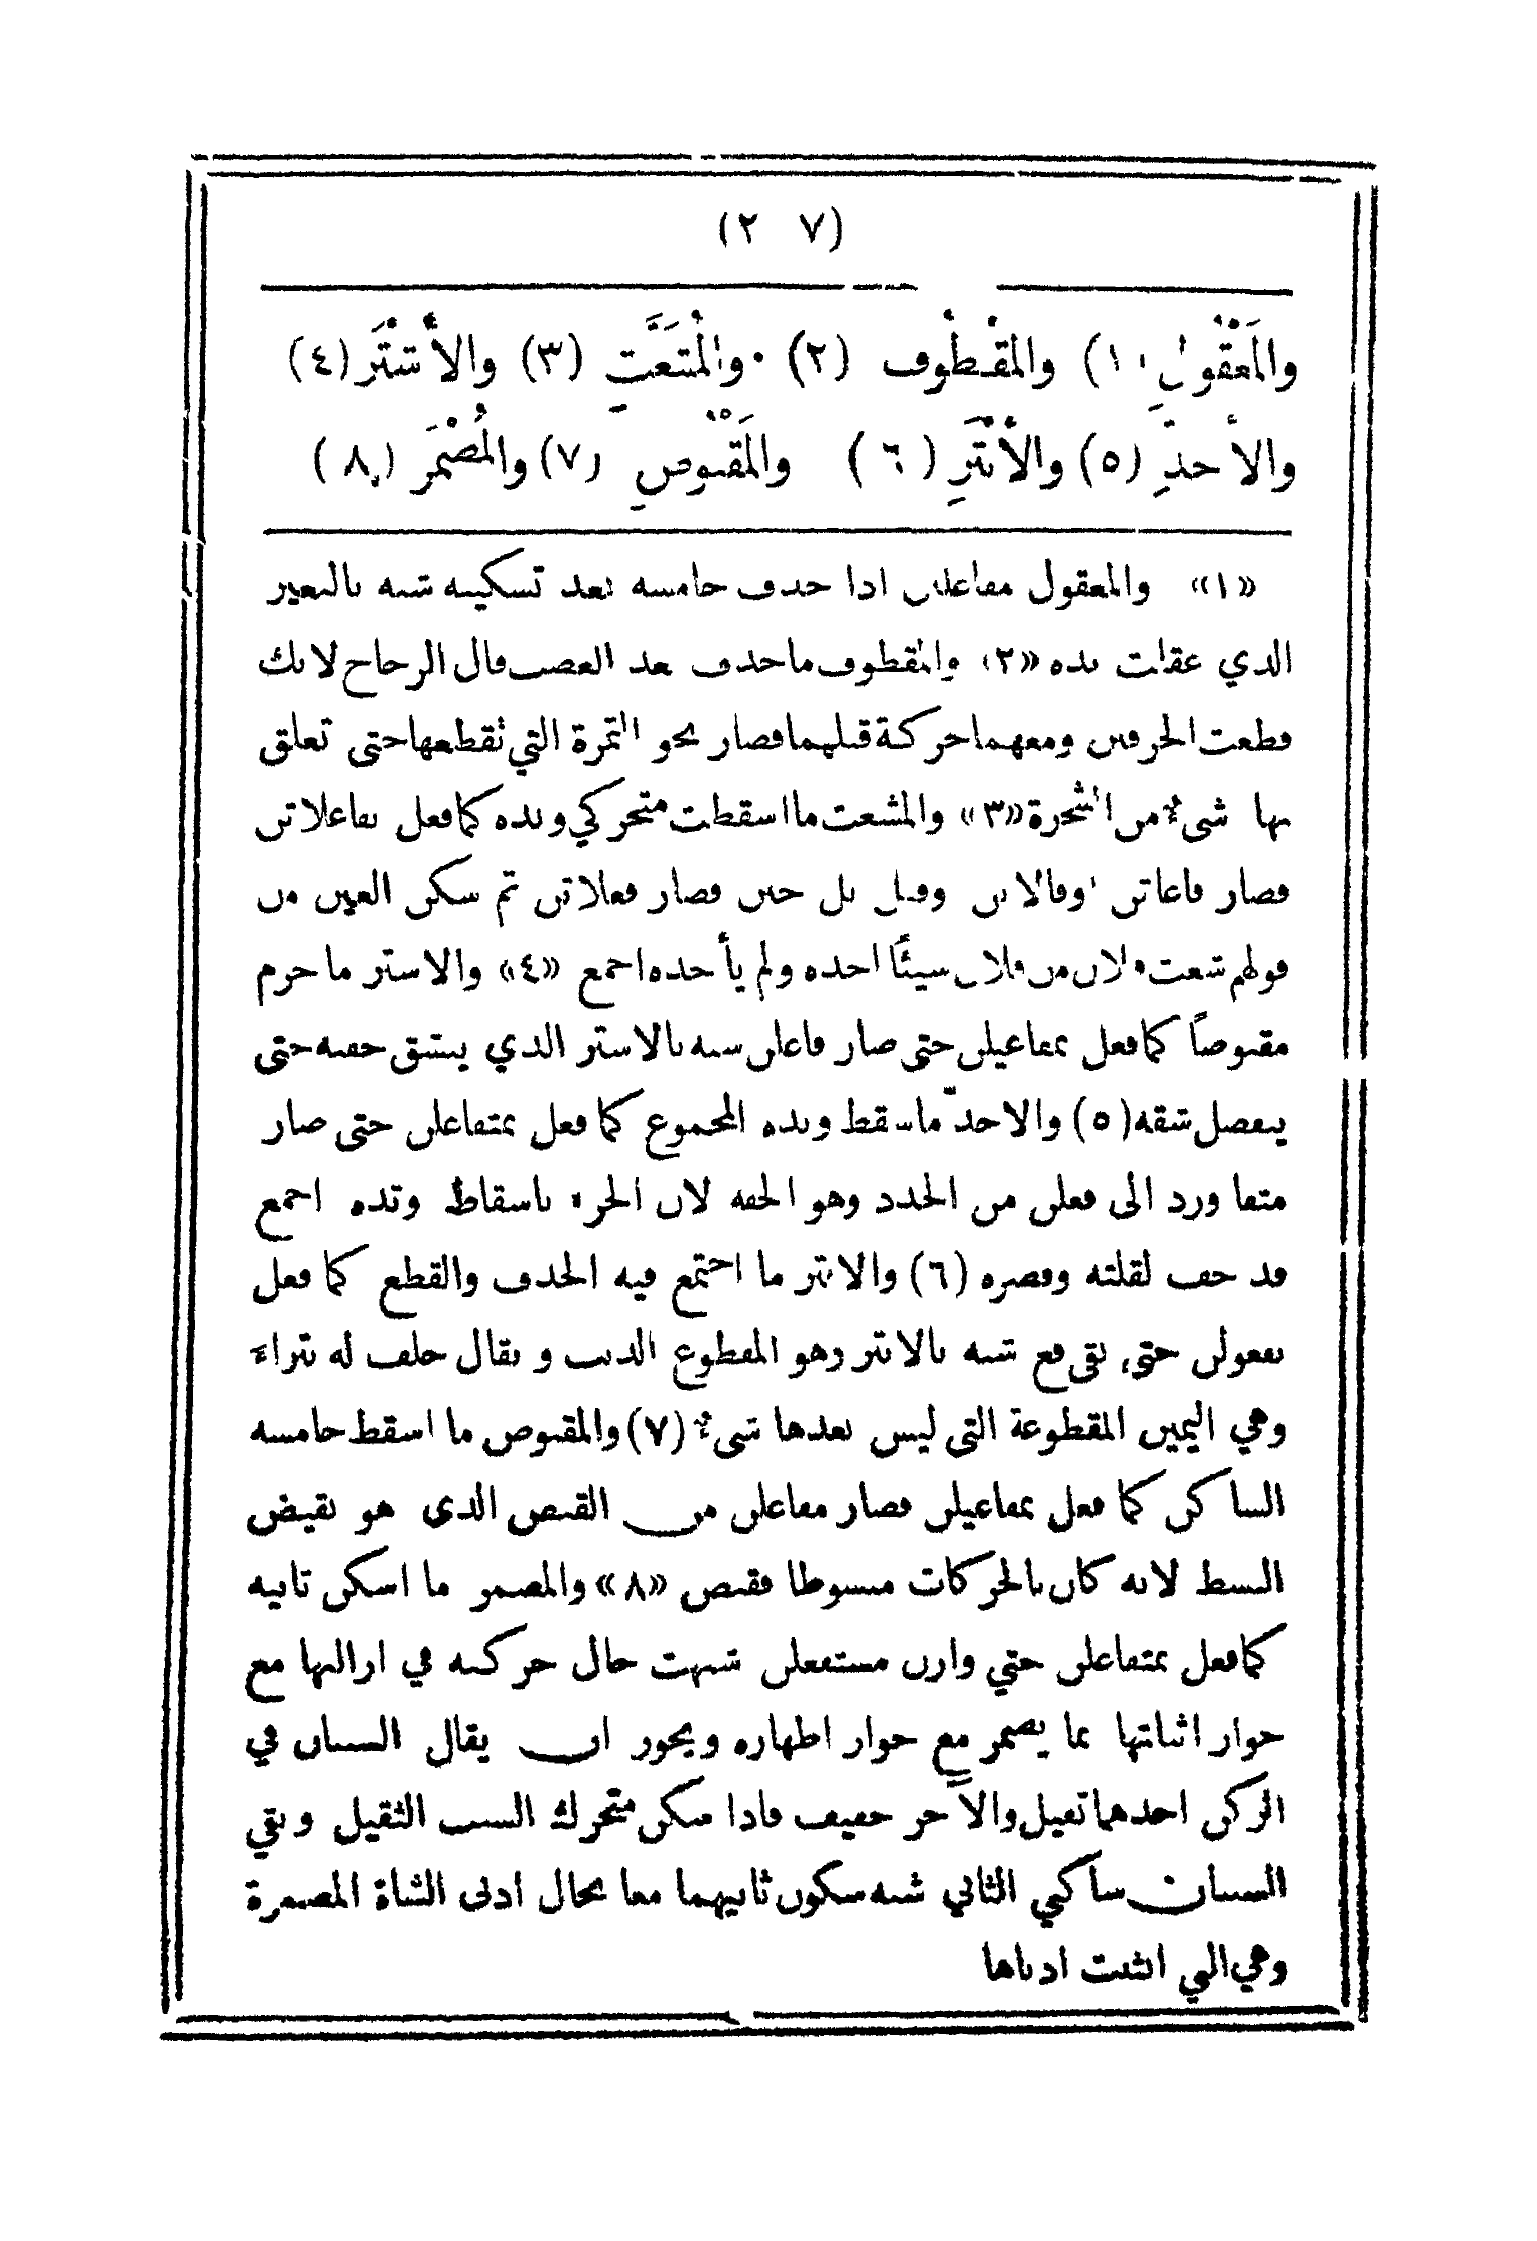 (٢٧)
والمَعْقُولِ (١) والمَقْطُوف (٢) والمُشَعَّثِ (٣) والأَشْتَر (٤)
والاحذّ (٥) والأَبْتَرِ (٦) والمَقْبُوضِ (٧) والمُضْمَر (٨)
«١» والمعقول مفاعلتن اذا حذف خامسه بعد تسكينه شبه بالبعير
الذي عقلت يده «٢» والمقطوف ما حذف بعد العصب قال الزجاج لانك
قطعت الحرفين ومعهما حركة قبلهما فصار نحو الثمرة التي تقطعها حتى تعلق
بها شيء من الشجرة «٣» والمشعث ما اسقطت متحركي وتده كما فعل بفاعلاتن
فصار فاعاتن اوفالاتن وقيل بل خبن فصار فعلاتن ثم سكن العين من
قولهم شعث فلان من فلان شيئًا اخذه ولم يأخذه اجمع «٤» والاشتر ما خرم
مقبوضاً كما فعل بمفاعيلن حتى صار فاعلن شبه بالاشتر الذي ينشق جفنه حتى
ينفصل شقه (٥) والاحذّ ما سقط وتده المجموع كما فعل بمتفاعلن حتى صار
متفا ورد الى فعلن من الحذذ وهو الخفة لان الجزء باسقاط وتده اجمع
قد خف لقلته وقصره (٦) والابتر ما اجتمع فيه الحذف والقطع كما فعل
بفعولن حتى بقي فع شبه بالابتر وهو المقطوع الذنب و يقال حلف له بتراء
وهي اليمين المقطوعة التي ليس بعدها شيء (٧) والمقبوض ما اسقط خامسه
الساكن كما فعل بمفاعيلن فصار مفاعلن من القبض الذي هو نقيض
البسط لانه كان بالحركات مبسوطا فقبض «٨» والمضمر ما اسكن ثانيه
كما فعل بمتفاعلن حتي وازن مستفعلن شبهت حال حركته في ازالتها مع
جواز اثباتها بما يضمر مع جواز اظهاره ويجوز ان يقال السببان في
الركن احدهما ثقيل والآخر خفيف فاذا سكن متحرك السبب الثقيل وبقي
السببان ساكني الثاني شبه سكون ثانيهما معا بحال اذني الشاة المضمرة
وهي التي انثنت اذناها